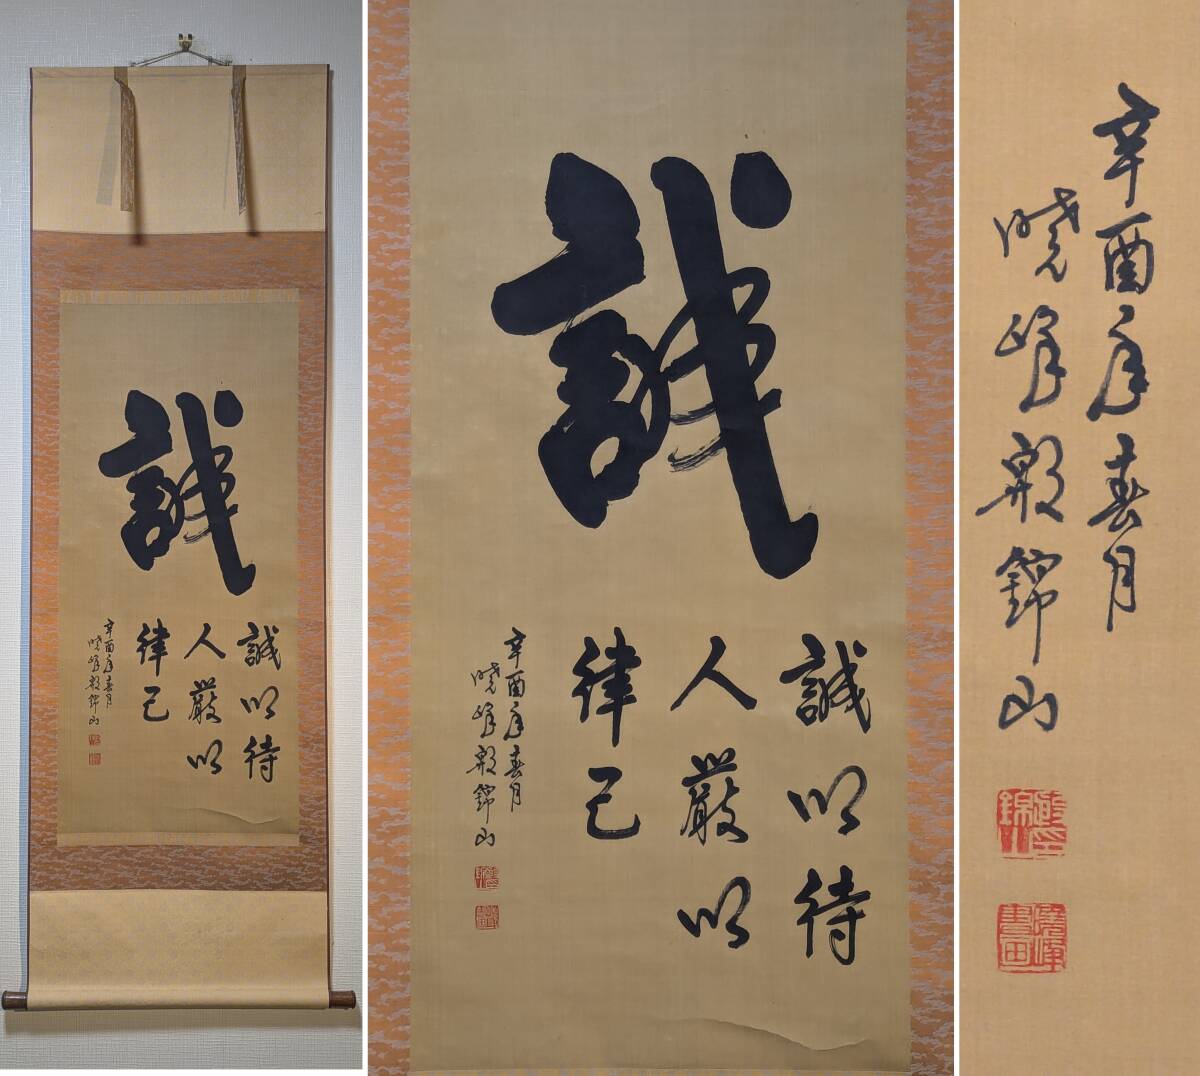 誠
誠以待
人嚴以
律己
辛酉年春月
曉峰 錦山
誠
誠以待
人嚴以
律己
辛酉年春月
曉峰 錦山
辛酉年春月
曉峰 錦山
曉峰書画